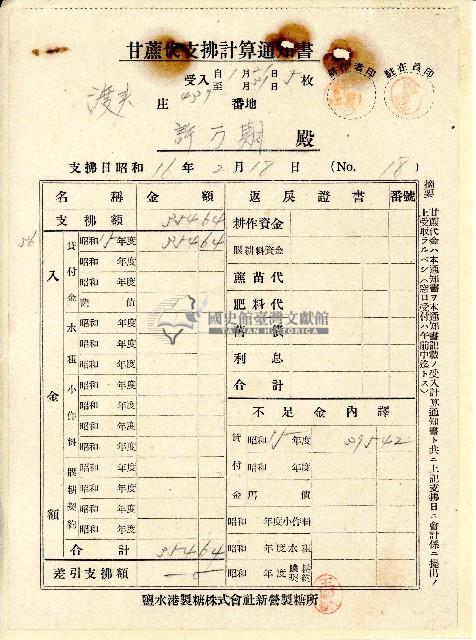 甘蔗代支拂計算通知書
受入 自1月31日 至 月31日 5枚
耕作者印
駐在員印
渡夫
庄 439 番地
許万期 殿
支拂日昭和16年2月18日 (No. 18)
名稱 金額 返戻證書 番號
支拂額 35464
耕作資金
56
入金額
貸付金
昭和15年度 35464
昭和 年度
昭和 年度
舊債
購耕料資金
蔗苗代
肥料代
舊債
利息
合計
水租
昭和 年度
昭和 年度
昭和 年度
小作料
昭和 年度
昭和 年度
昭和 年度
購耕契約
昭和 年度
昭和 年度
昭和 年度
昭和 年度
合計 35464
差引支拂額 0
不足金內譯
貸付金
昭和15年度 39542
昭和 年度
舊債
昭和 年度小作料
昭和 年度水租
昭和 年度購耕契約
摘要
甘蔗代金ハ本通知書ヲ本通知書記載ノ受入計算通知書ト共ニ上記支拂日ニ會計係ニ提出ノ
上受取ラルベシ(窓口受付ハ午前中迄トス)
國史館臺灣文獻館
TAIWAN HISTORICA
鹽水港製糖株式會社新營製糖所